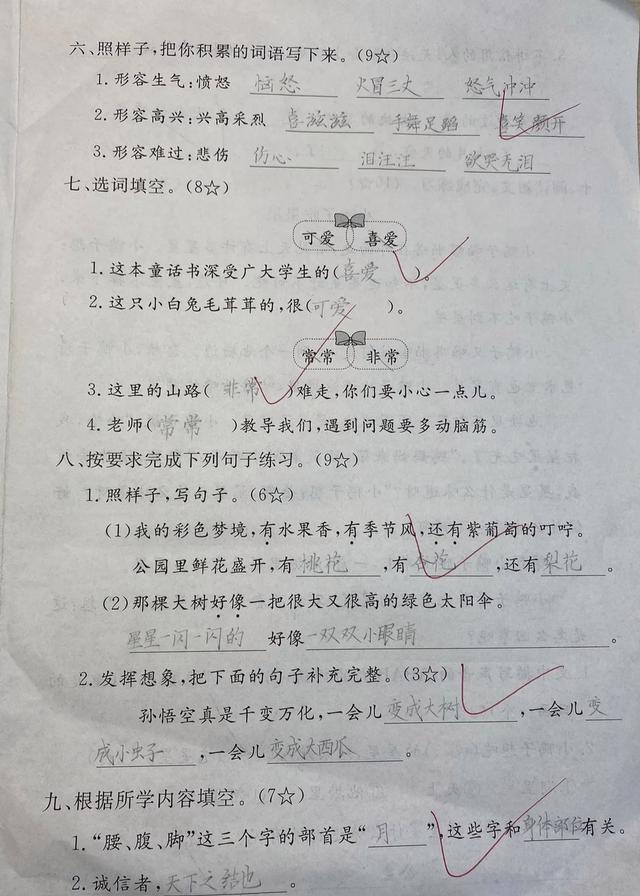 六、照样子,把你积累的词语写下来。(9☆)
1. 形容生气:愤怒 恼怒 火冒三丈 怒气冲冲
2. 形容高兴:兴高采烈 喜滋滋 手舞足蹈 喜笑颜开
3. 形容难过:悲伤 伤心 泪汪汪 欲哭无泪
七、选词填空。(8☆)
可爱 喜爱
1. 这本童话书深受广大学生的(喜爱)。
2. 这只小白兔毛茸茸的,很(可爱)。
常常 非常
3. 这里的山路(非常)难走,你们要小心一点儿。
4. 老师(常常)教导我们,遇到问题要多动脑筋。
八、按要求完成下列句子练习。(9☆)
1. 照样子,写句子。(6☆)
(1)我的彩色梦境,有水果香,有季节风,还有紫葡萄的叮咛。
公园里鲜花盛开,有桃花,有杏花,还有梨花。
(2)那棵大树好像一把很大又很高的绿色太阳伞。
星星一闪一闪的 好像一双双小眼睛
2. 发挥想象,把下面的句子补充完整。(3☆)
孙悟空真是千变万化,一会儿变成大树,一会儿变
成小虫子,一会儿变成大西瓜。
九、根据所学内容填空。(7☆)
1. “腰、腹、脚”这三个字的部首是“月”,这些字和身体部位有关。
2. 诚信者,天下之结也。